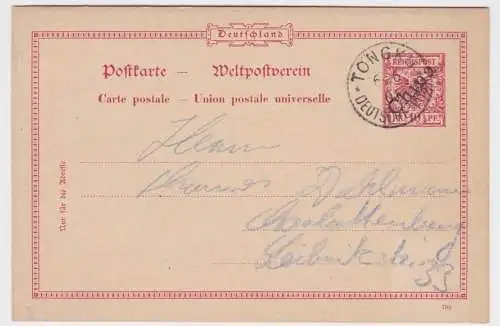 Deutschland
Postkarte — Weltpostverein
Carte postale — Union postale universelle
REICHSPOST
China
10 PF.
TONGK
DEUTS
Herrn
Dahlmann
Charlottenburg
Leibnitzstrasse
53
Nur für die Adresse